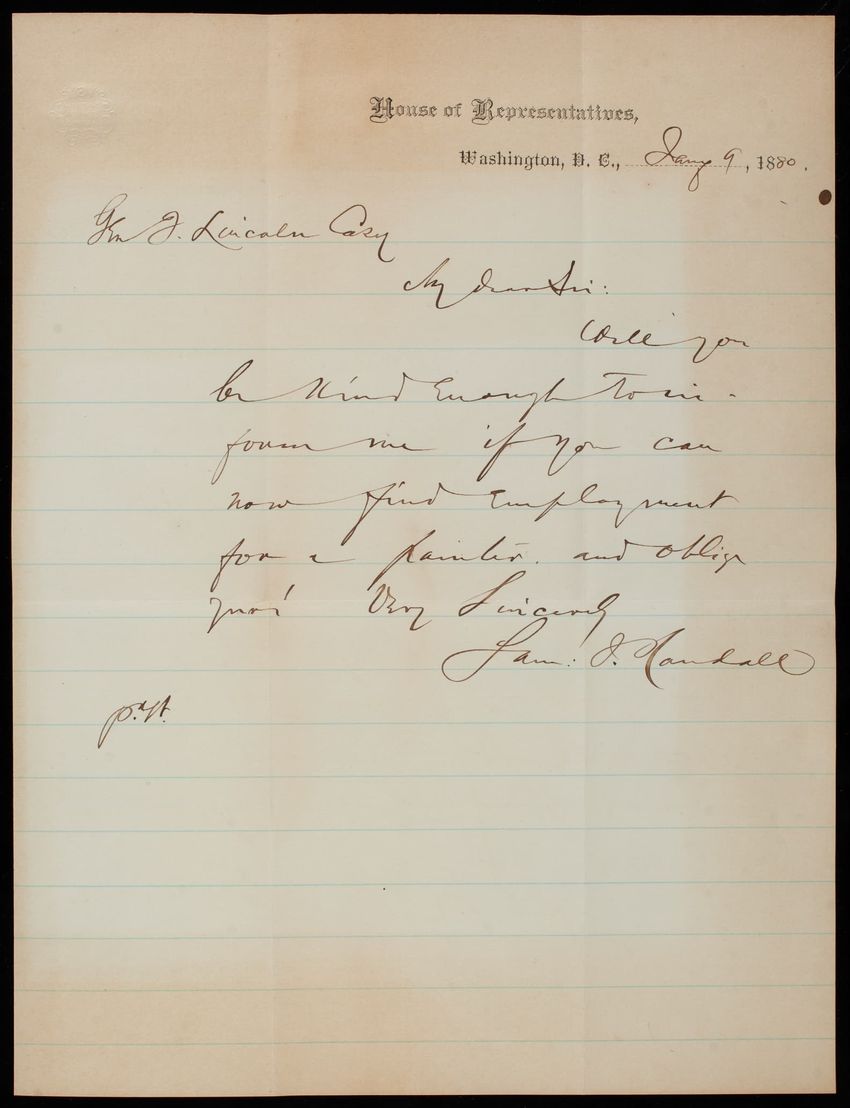 House of Representatives,
Washington, D. C., Jany 9, 1880.
Gen T. Lincoln Casey
My dear Sir:
Will you
be kind enough to in-
form me if you can
now find employment
for a painter. and oblige
yours Very Sincerely
Sam: J. Randall